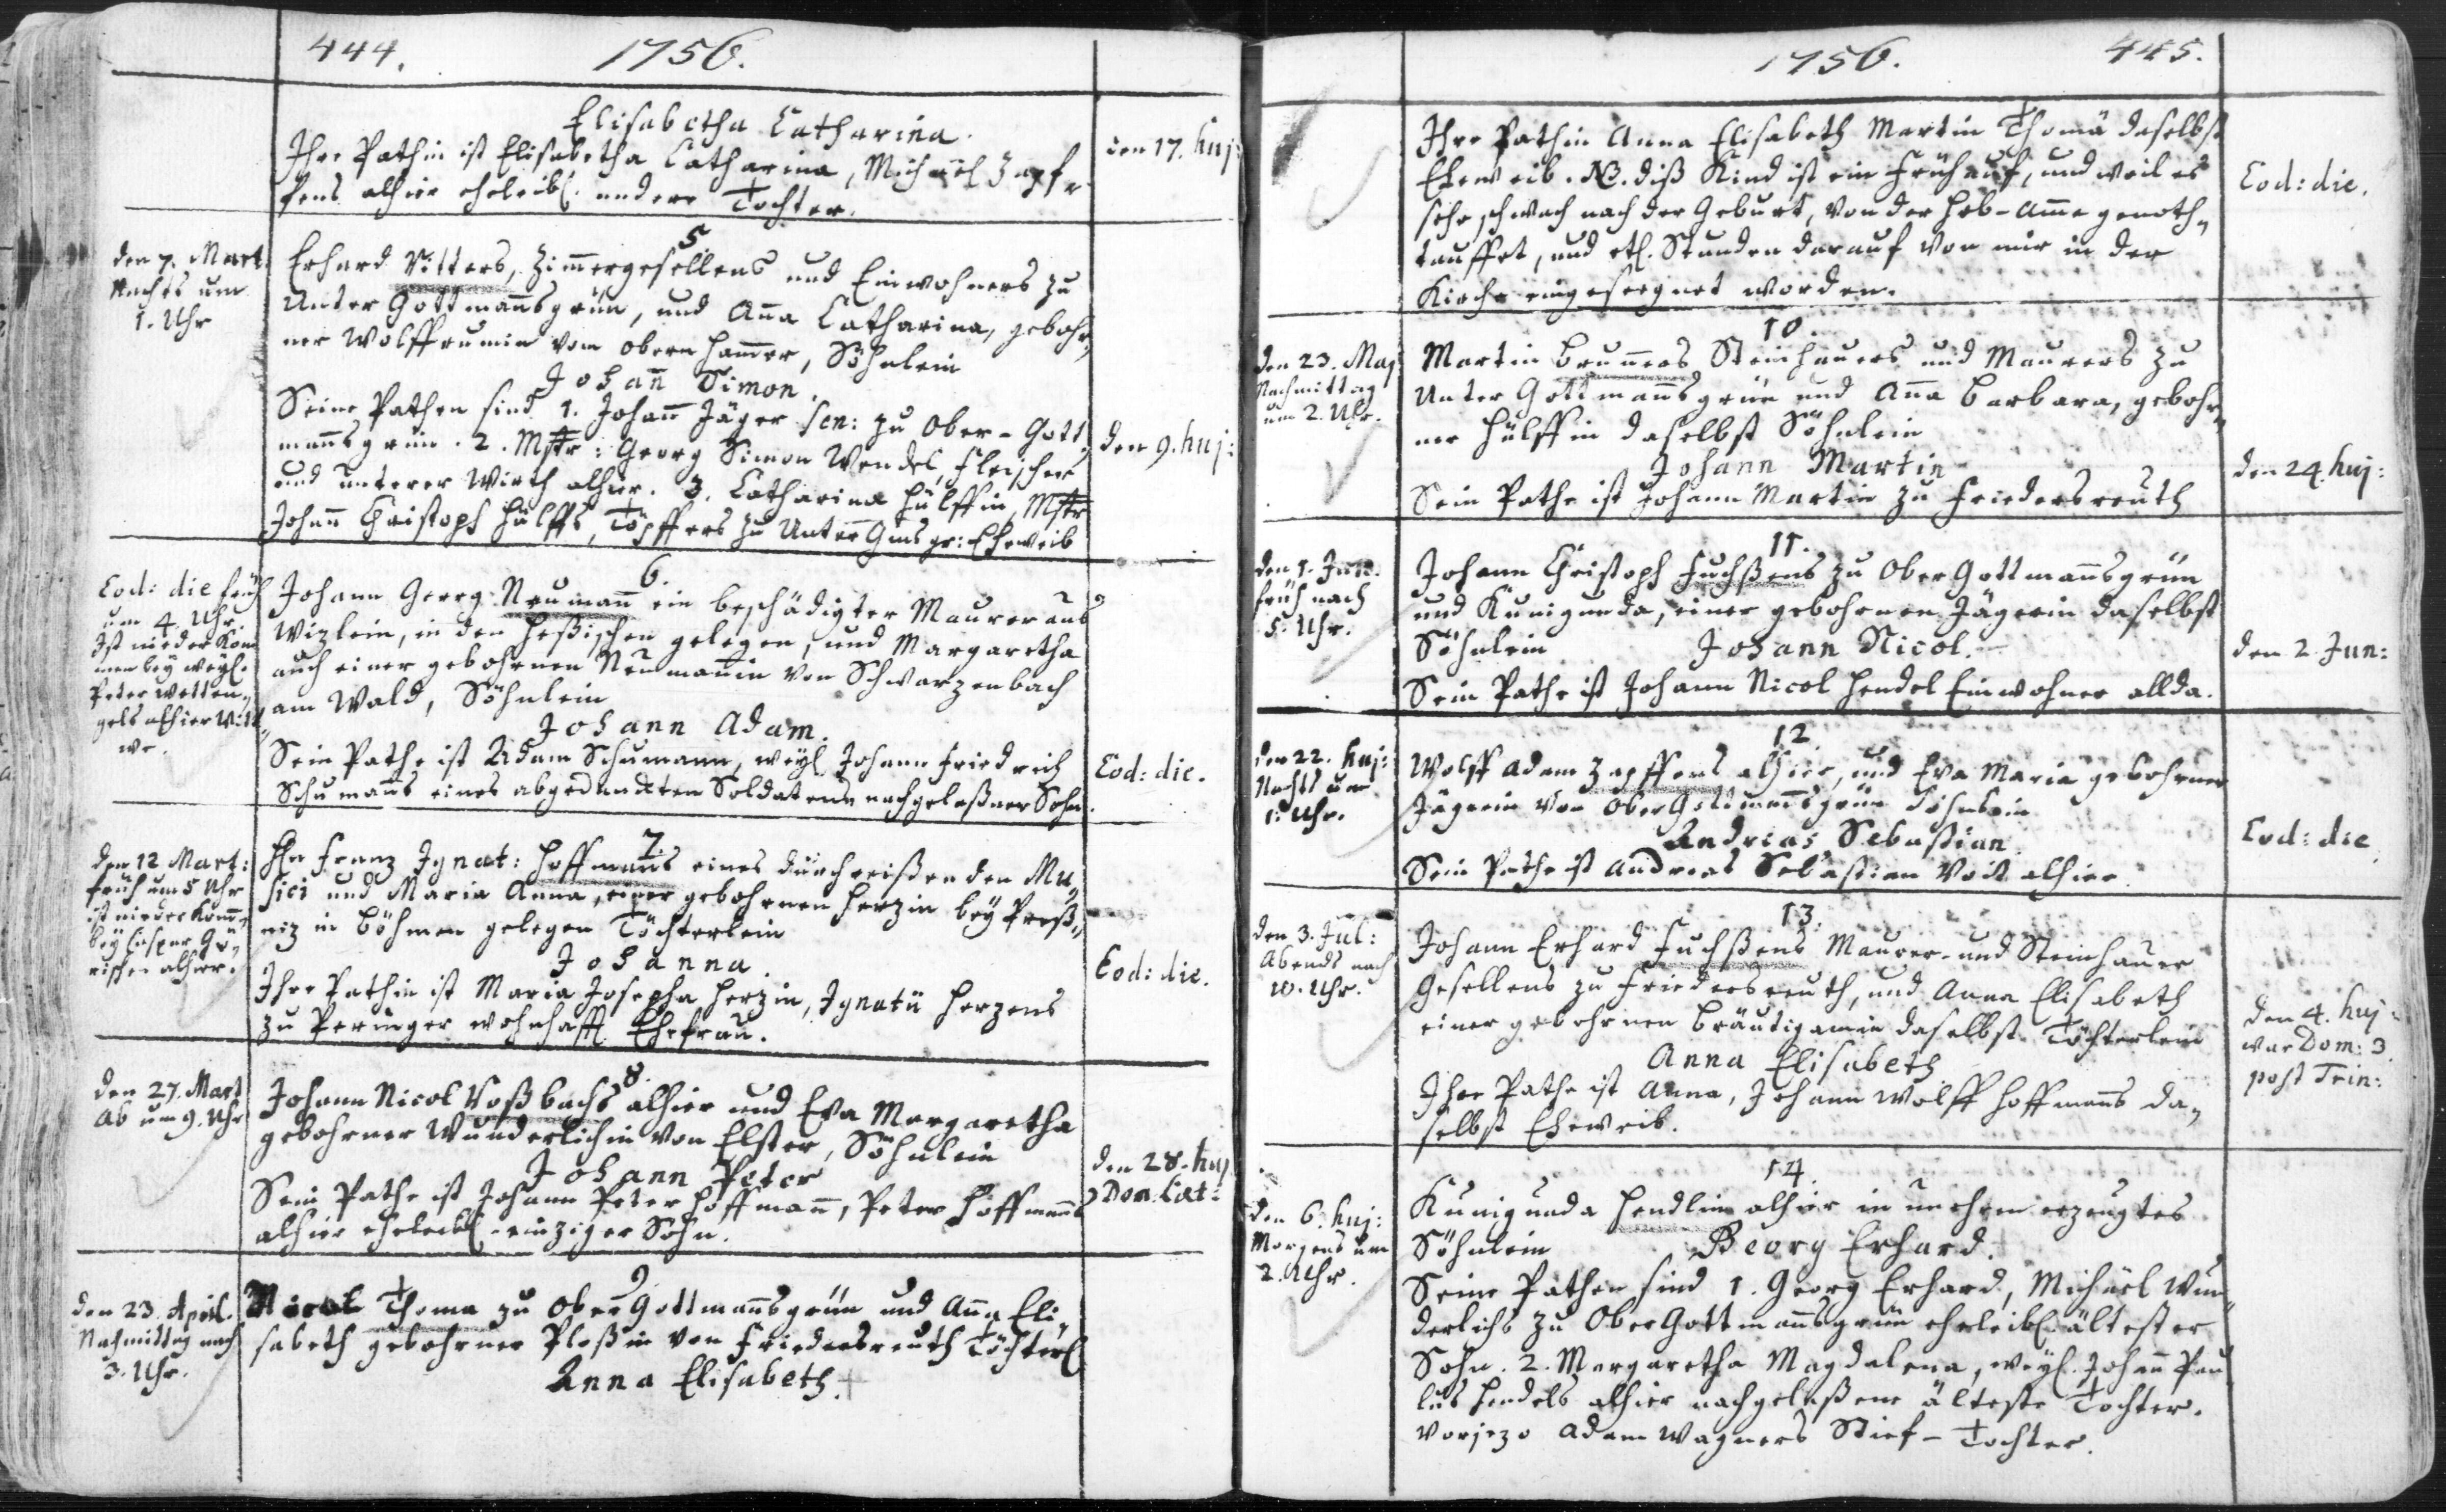 444. 1756.
Elisabetha Catharina.
Ihre Pathin ist Elisabetha Catharina, Michael Zapf-
fens alhier eheleibl. andere Tochter.
den 17. huj:
5
den 7. Mart
Nachts um
1. Uhr
Erhard Ritters, Zimmergesellens und Einwohners zu
Unter Gottmañsgrün, und Aña Catharina, gebohr„
ner Wolffrumin vom obern Hamer, Söhnlein
Johañ Simon.
Seine Pathen sind 1. Johann Jäger sen: zu Ober-Gott„
mañsgrün. 2. Mstr: Georg Simon Wendel, Fleischer
und unterer Wirth alhier. 3. Catharina Hülffin, Mstr
Johann Christoph Hülffs, Töpffers zu Unter Gmsgr: Eheweib
den 9. huj:
6.
Eod: die früh
um 4. Uhr.
Ist nieder Kom
men bey weyl.
Peter Wetten„
gels alhier Witt„
we.
Johann Georg Neumañ ein beschädigter Maurer aus
Wizlein, in den Heßischen gelegen, und Margaretha
auch einer gebohrnen Neumañin von Schwarzenbach
am Wald, Söhnlein
Johann Adam.
Sein Pathe ist Adam Schumann, weyl. Johann Friedrich
Schumañs eines abgedanckten Soldatens nachgelaßner Sohn.
Eod: die.
7.
den 12 Mart:
früh um 5 Uhr
ist nieder Komm„
bey Caspar
alhier.
Hn Franz Ignat: Hoffmañs eines durchreißenden Mu„
sici und Maria Anna, einer gebohrnen Herzin bey Preß„
niz in Böhmen gelegen Töchterlein
Johanna.
Ihre Pathin ist Maria Josepha Herzin, Ignatii Herzens
zu Peringer wohnhafft Ehefrau.
Eod: die.
8.
den 27. Mart
Ab um 9. Uhr
Johann Nicol Voßbachs alhier und Eva Margaretha
gebohrner Wunderlichin von Elster, Söhnlein
Johann Peter
Sein Pathe ist Johann Peter Hoffmañ, Peter Hoffmañs
alhier eheleibl. einziger Sohn.
den 28. huj
Dom. Laet:
9
den 23. April.
Nachmittag nach
3. Uhr.
Nicol Thoma zu Ober Gottmañsgrün und Aña Eli„
sabeth gebohrner Ploßin von Friedersreuth Töchterl.
Anna Elisabeth. +
1756. 445.
Ihre Pathin Anna Elisabeth Martin Thomä daselbst
Eheweib. NB. diß Kind ist ein Frühauf, und weil es
sehr schwach nach der Geburt, von der Heb-Ame genoth„
tauffet, und etl. Stunden darauf von mir in der
Kirche eingeseegnet worden.
Eod: die.
10.
den 23. Maj
Nachmittag
um 2. Uhr.
Martin Bruñers Steinhauers und Maurers zu
Unter Gottmañsgrün und Aña Barbara, gebohr„
ner Hülffin daselbst Söhnlein
Johann Martin
Sein Pathe ist Johann Martin zu Friedersreuth
den 24. huj:
11.
den 1. Jun.
früh nach
5. Uhr.
Johann Christoph Fuchßens zu Ober Gottmañsgrün
und Kunigunda, einer gebohrnen Jägerin daselbst
Söhnlein Johann Nicol.
Sein Pathe ist Johann Nicol Hendel Einwohner allda.
den 2. Jun:
12
den 22. huj:
Nachts um
1. Uhr.
Wolff Adam Zapffens alhier, und Eva Maria gebohrner
Jägerin von Ober Gottmañsgrün Söhnlein
Andreas Sebastian
Sein Pathe ist Andreas Sebastian Voit alhier.
Eod: die
13.
den 3. Jul:
Abends nach
10. Uhr.
Johann Erhard Fuchßens Maurer- und Steinhauer
Gesellens zu Friedersreuth, und Anna Elisabeth
einer gebohrnen Bräutigamin daselbst Töchterlein
Anna Elisabeth
Ihre Pathe ist Anna, Johann Wolff Hoffmañs da„
selbst Eheweib.
den 4. huj:
war Dom: 3.
post Trin:
14.
den 6. huj:
Morgens um
2. Uhr.
Kunigunda Hendlin alhier in unehren erzeugtes
Söhnlein Georg Erhard.
Seine Pathen sind 1. Georg Erhard, Michael Wun„
derlichs zu Ober Gottmañsgrün eheleibl. ältester
Sohn. 2. Margaretha Magdalena, weyl. Johann Pau„
lus Hendels alhier nachgelaßene älteste Tochter.
vorjezo Adam Wagners Stief-Tochter.